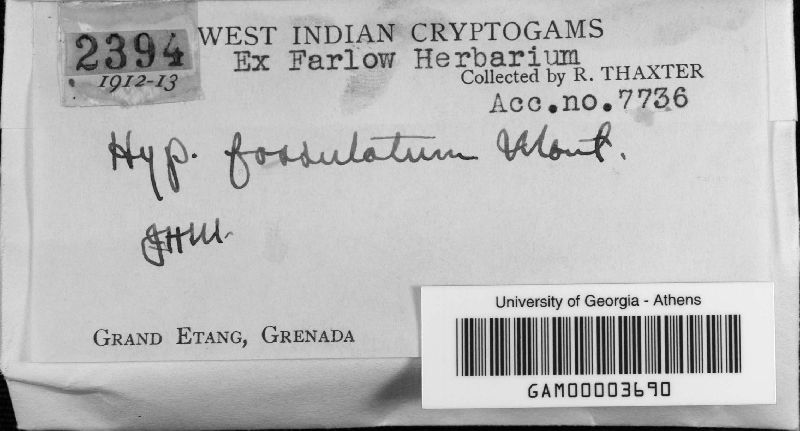 2394
1912-13
WEST INDIAN CRYPTOGAMS
Ex Farlow Herbarium
Collected by R. THAXTER
Acc.no.7736
Hyp. fossulatum Mont.
JHM.
GRAND ETANG, GRENADA
University of Georgia - Athens
GAM00003690